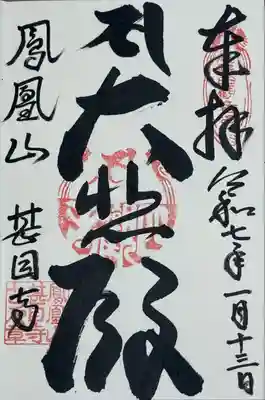 奉拝 令和七年一月十三日
大悲殿
鳳凰山 甚目寺